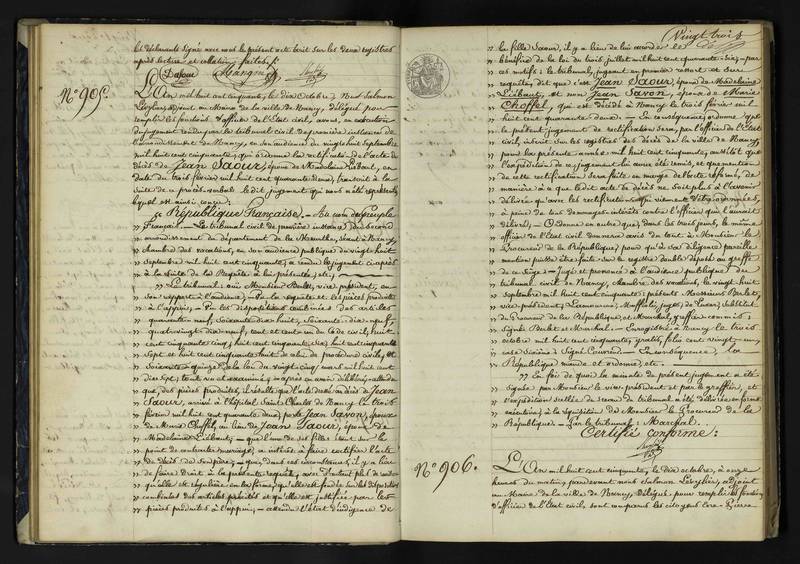 et déclarants signé avec nous le présent acte écrit sur les deux registres
après lecture et collation faites./.
Dasoue Mangin
N° 905.
L'An mil huit cent cinquante, le dix Octobre, Nous Salmon
Lévylier, adjoint au Maire de la ville de Nancy, délégué pour
remplir les fonctions d'officier de l'Etat civil, avons, en exécution
du jugement rendu par le tribunal civil de première instance de
l'arrondissement de Nancy, en son audience du vingt huit Septembre
mil huit cent cinquante, qui ordonne la rectification de l'acte de
décès de Jean Saour, époux de Madelaine Liébaut, en
date du trois février mil huit cent quarante deux, transcrit à la
suite de ce procès-verbal le dit jugement qui nous a été représenté,
lequel est ainsi conçu:
« République française. – Au nom du Peuple
» Français. – Le tribunal civil de première instance du second
» arrondissement du département de la Meurthe, séant à Nancy,
» chambre des vacations, en son audience publique du vingt huit
» septembre mil huit cent cinquante, a rendu le jugement ci-après
» à la suite de la Requête à lui présentée, etc,
» Le tribunal: ouï Monsieur Boulet, vice président, en
» son rapport à l'audience; – Vu la requête et les pièces produites
» à l'appui; – Vu les dispositions combinées des articles
» quarante-neuf, soixante-dix-huit, soixante-dix-neuf,
» quatre vingt dix-neuf, cent et cent-un du Code civil, huit
» cent cinquante cinq, huit cent cinquante six, huit cent cinquante
» sept et huit cent cinquante huit de celui de procédure civile, et
» soixante-quinze de la loi du vingt cinq mars mil huit cent
» dix sept; tout vu et examiné; – après en avoir délibéré; – attendu
» que, des pièces produites, il résulte que l'acte de décès de Jean
» Saour, arrivé à l'hôpital Saint Charles de Nancy le trois
» février mil huit cent quarante deux, porte Jean Savon, époux
» de Marie Choffel, au lieu de Jean Saour, époux de
» Madelaine Liébaut; – que l'une de ses filles étant sur le
» point de contracter mariage, a intérêt à faire rectifier l'acte
» de décès de son père; – que, dans ces circonstances, il y a lieu
» de faire droit à la présente requête, avec d'autant plus de raison
» qu'elle est régulière en la forme, qu'elle est fondée sur les dispositions
» combinées des articles précités et qu'elle est justifiée par les
» pièces produites à l'appui; – attendu l'état d'indigence de
Vingt trois
» la fille Saour, il y a lieu de lui accorder le
» bénéfice de la loi du trois juillet mil huit cent quarante-six; – par
» ces motifs: le tribunal, jugeant en premier ressort et sur
» requête, dit que c'est Jean Saour, époux de Madelaine
» Liébaut, et non Jean Savon, époux de Marie
» Choffel, qui est décédé à Nancy le trois février mil
» huit cent quarante deux. – En conséquence, ordonne que
» le présent jugement de rectification sera, par l'officier de l'Etat
» civil, inscrit sur les registres des décès de la ville de Nancy,
» pour la présente année mil huit cent cinquante, aussitôt que
» l'expédition de ce jugement lui aura été remise, et que mention
» de cette rectification sera faite en marge de l'acte réformé, de
» manière à ce que ledit acte de décès ne soit plus à l'avenir
» délivré qu'avec les rectifications qui viennent d'être ordonnées,
» à peine de tous dommages-intérêts contre l'officier qui l'aurait
» délivré; – Ordonne en outre que, dans les trois jours, le même
» officier de l'Etat civil donnera avis du tout à Monsieur le
» Procureur de la République, pour qu'à sa diligence pareille
» mention puisse être faite sur le registre double déposé au greffe
» de ce siège. – Jugé et prononcé à l'audience publique du
» tribunal civil de Nancy, chambre des vacations, le vingt huit
» septembre mil huit cent cinquante; présents Messieurs
» vice président, juges, Substitut
» du Procureur de la République et Maréchal, greffier commis;
» Signés et Maréchal. – Enregistré à Nancy le trois
» octobre mil huit cent cinquante, gratis, folio cent vingt-un,
» case Signé – En conséquence, La
» République mande et ordonne, etc –
» En foi de quoi la minute du présent jugement a été
» signée par Monsieur le vice-président et par le greffier, et
» l'expédition scellée du sceau du tribunal a été délivrée en forme
» exécutoire, à la réquisition de Monsieur le Procureur de la
» République. – Par le tribunal: Maréchal.
Certifié conforme:
N° 906.
L'An mil huit cent cinquante, le dix octobre, à onze
heures du matin, par devant nous Salmon Lévylier, adjoint
au Maire de la ville de Nancy, délégué pour remplir les fonctions
d'officier de l'Etat civil, sont comparus les citoyens Pierre